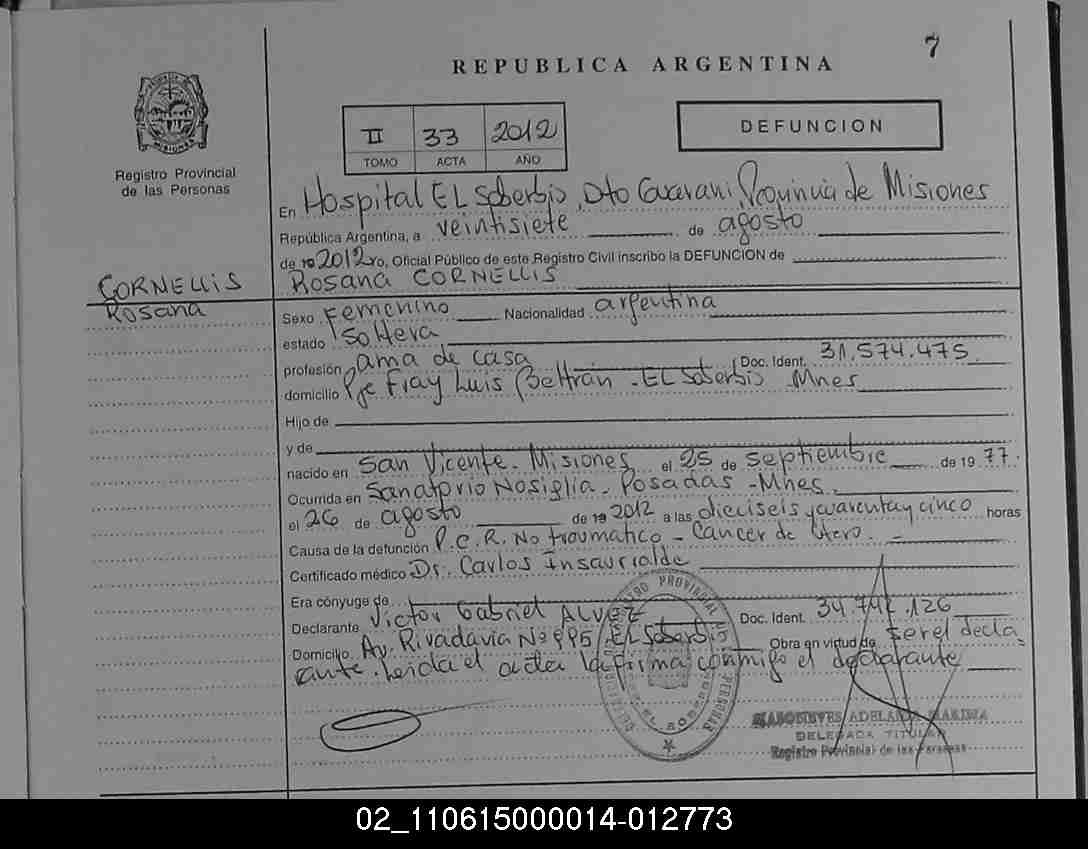 7
REPUBLICA ARGENTINA
MISIONES
Registro Provincial
de las Personas
II 33 2012
TOMO ACTA AÑO
DEFUNCION
En Hospital EL Soberbio, Dto Guarani, Provincia de Misiones
República Argentina, a veintisiete de agosto
de 19 2012 yo, Oficial Público de este Registro Civil inscribo la DEFUNCION de
Rosana CORNELLIS
CORNELLIS
Rosana
Sexo Femenino Nacionalidad argentina
estado soltera
profesión ama de casa Doc. Ident. 31.574.475
domicilio Pje Fray Luis Beltrán - EL Soberbio Mnes
Hijo de
y de
nacido en San Vicente. Misiones el 25 de septiembre de 19 77
Ocurrida en Sanatorio Nosiglia - Posadas - Mnes
el 26 de agosto de 19 2012 a las dieciseis y cuarentay cinco horas
Causa de la defunción P.C.R. No traumatico - Cancer de Utero. -
Certificado médico Dr. Carlos Insaurralde
Era cónyuge de
Declarante Victor Gabriel ALVEZ Doc. Ident. 34.742.126
Domicilio Av. Rivadavia Nº 995 EL Soberbio Obra en virtud de ser el decla
rante. Leída el acta la firma conmigo el declarante
DELEGADA TITULAR
Registro Provincial de las Personas
02_110615000014-012773